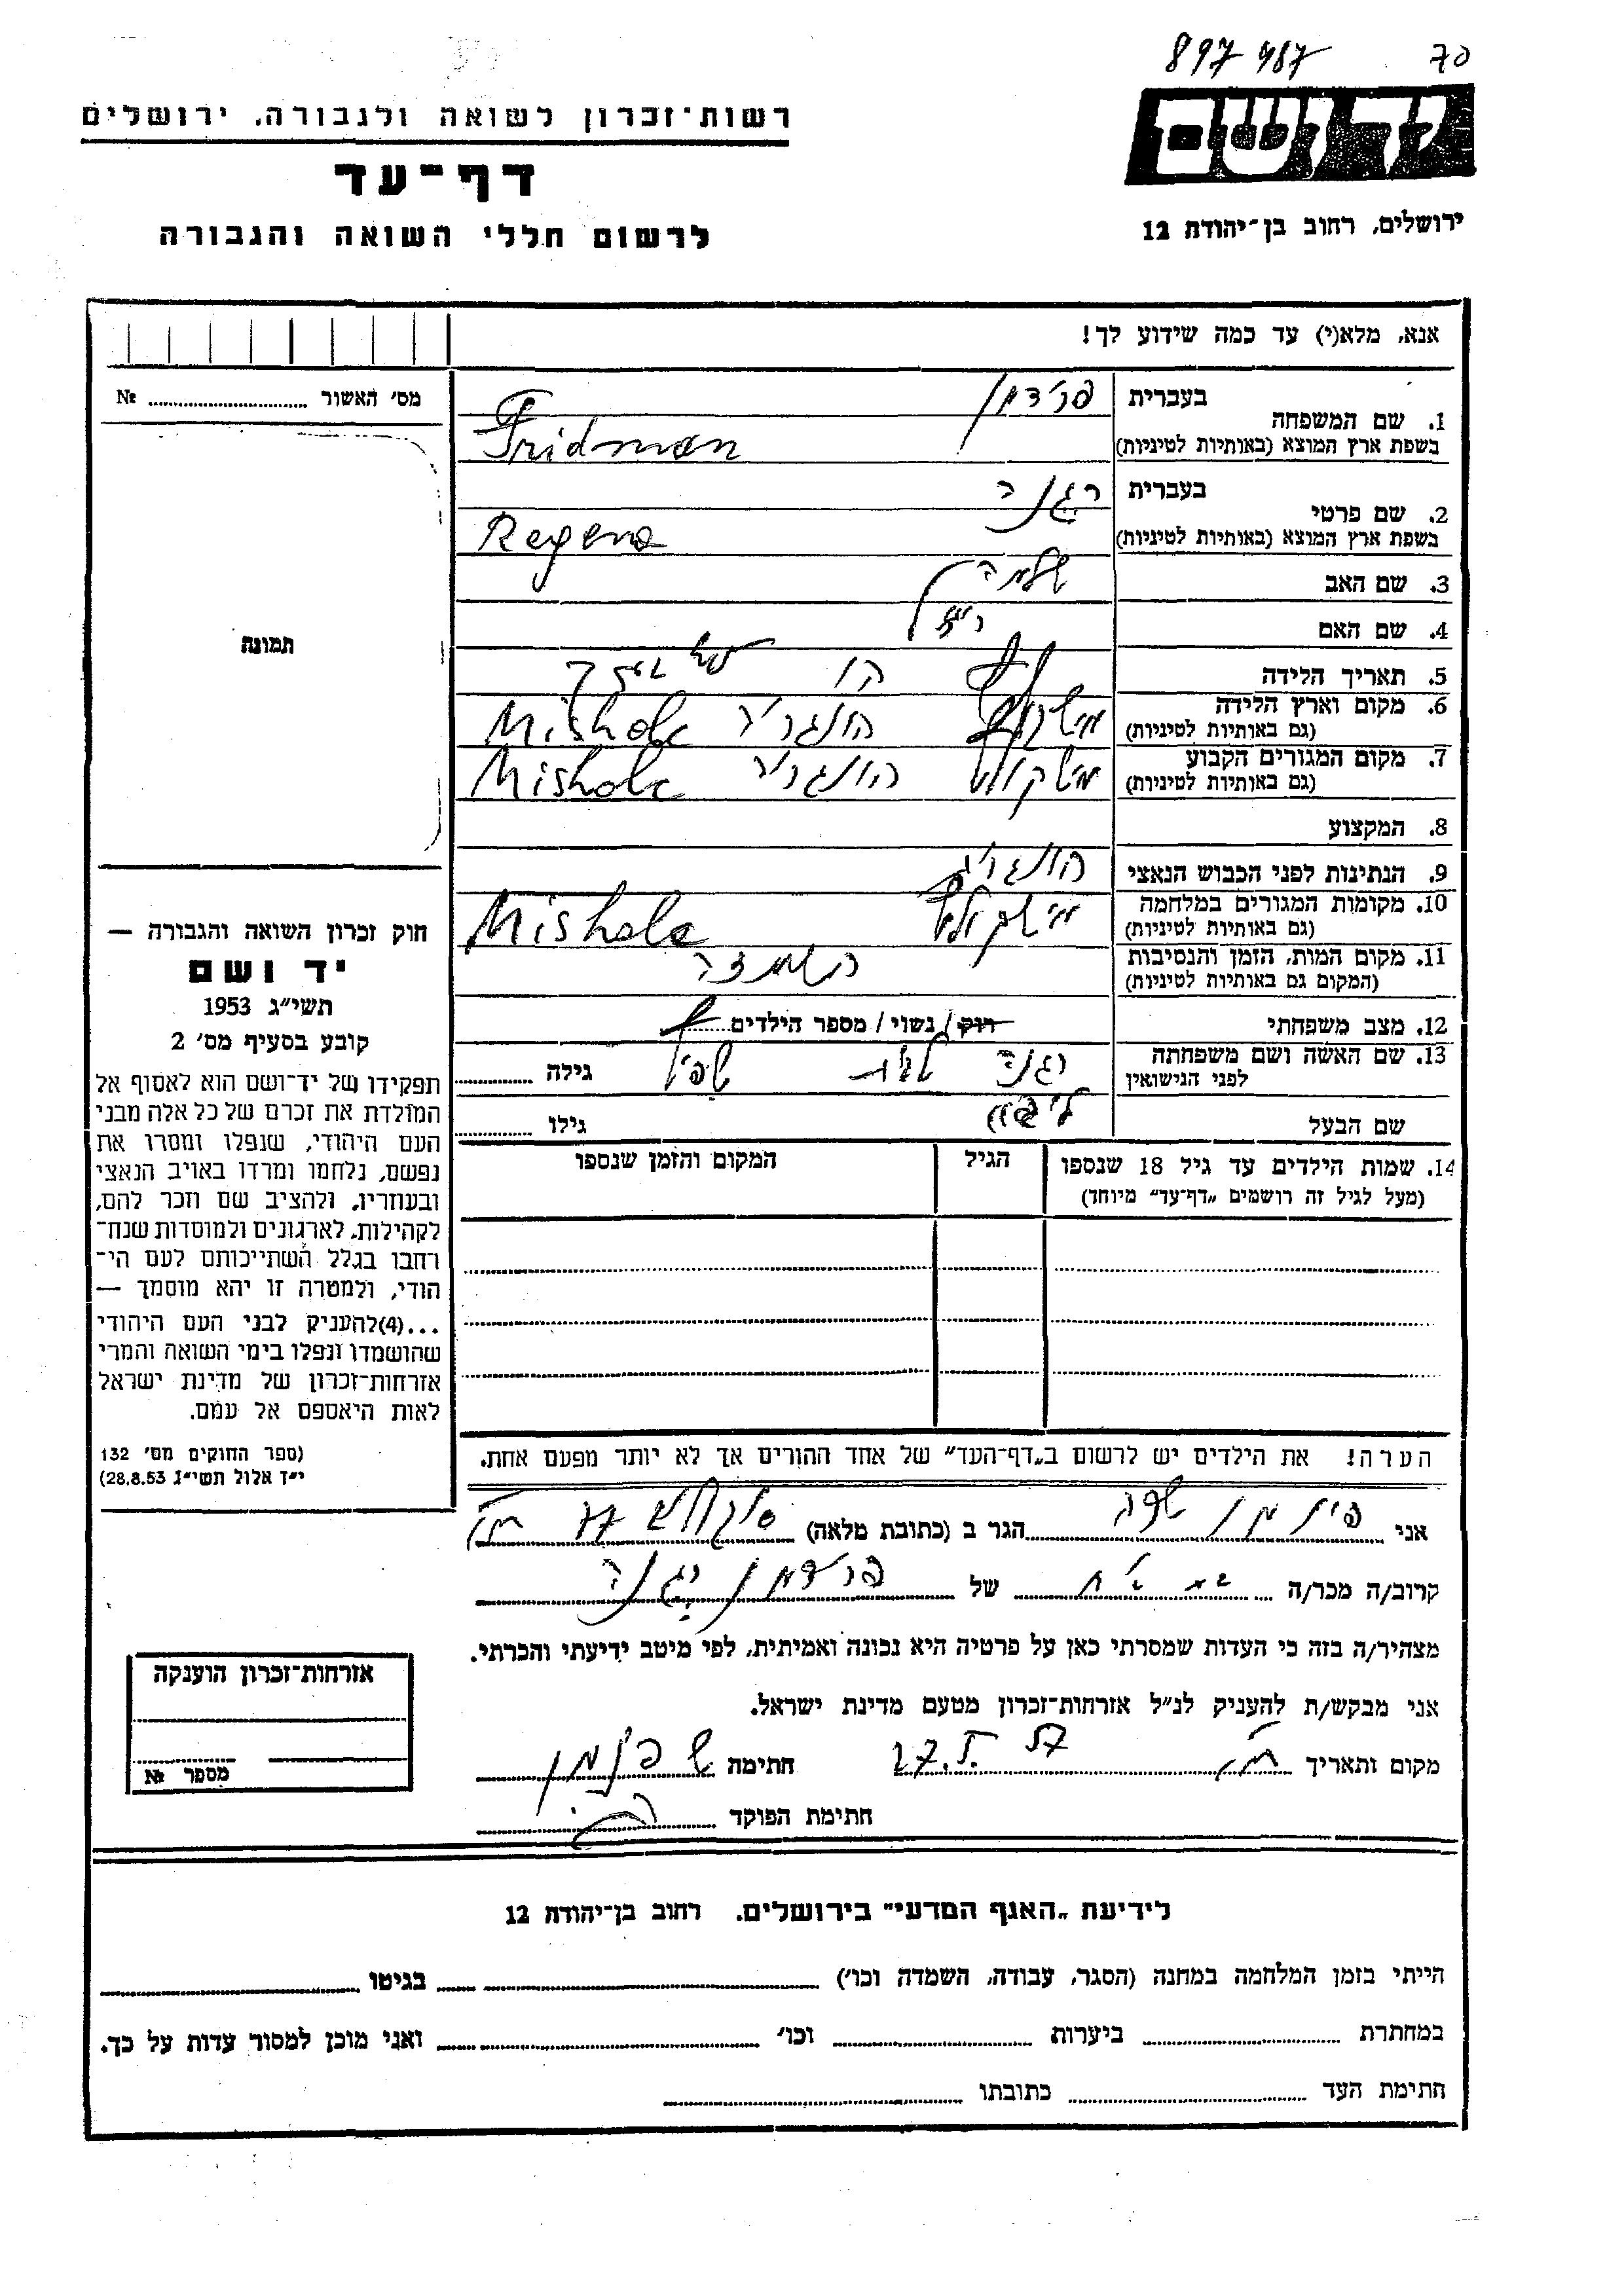 897 487 70
רשות־זכרון לשואה ולגבורה, ירושלים
יד ושם
דף־עד
לרשום חללי השואה והגבורה
ירושלים, רחוב בן־יהודה 12
אנא, מלא(י) עד כמה שידוע לך!
מס׳ האשור № 
1. שם המשפחה בעברית פרידמן
בשפת ארץ המוצא (באותיות לטיניות) Fridman
2. שם פרטי בעברית רגינה
בשפת ארץ המוצא (באותיות לטיניות) Regena
3. שם האב שלמה
4. שם האם
תמונה
5. תאריך הלידה
6. מקום וארץ הלידה (גם באותיות לטיניות) מישקולץ הונגריה Mishola
7. מקום המגורים הקבוע (גם באותיות לטיניות) מישקולץ הונגריה Mishola
8. המקצוע
9. הנתינות לפני הכבוש הנאצי הונגריה
10. מקומות המגורים במלחמה (גם באותיות לטיניות) מישקולץ Mishola
11. מקום המות, הזמן והנסיבות (המקום גם באותיות לטיניות) השמדה
12. מצב משפחתי רוק/נשוי/מספר הילדים
13. שם האשה ושם משפחתה לפני הנישואין רגינה גילה
שם הבעל גילו
14. שמות הילדים עד גיל 18 שנספו (מעל לגיל זה רושמים „דף־עד״ מיוחד) הגיל המקום והזמן שנספו
חוק זכרון השואה והגבורה —
יד ושם
תשי״ג 1953
קובע בסעיף מס׳ 2
תפקידו של יד־ושם הוא לאסוף אל
המולדת את זכרם של כל אלה מבני
העם היהודי, שנפלו ומסרו את
נפשם, נלחמו ומרדו באויב הנאצי
ובעוזריו, ולהציב שם וזכר להם,
לקהילות, לארגונים ולמוסדות שנח־
רחבו בגלל השתייכותם לעם הי־
הודי, ולמטרה זו יהא מוסמך —
...(4)להעניק לבני העם היהודי
שהושמדו ונפלו בימי השואה והמרי
אזרחות־זכרון של מדינת ישראל
לאות היאספם אל עמם.
(ספר החוקים מס׳ 132
י״ד אלול תשי״ג 28.8.53)
הערה! את הילדים יש לרשום ב„דף־העד״ של אחד ההורים אך לא יותר מפעם אחת.
אני הגר ב (כתובת מלאה)
קרוב/ה מכר/ה של פרידמן רגינה
מצהיר/ה בזה כי העדות שמסרתי כאן על פרטיה היא נכונה ואמיתית, לפי מיטב ידיעתי והכרתי.
אני מבקש/ת להעניק לנ״ל אזרחות־זכרון מטעם מדינת ישראל.
מקום ותאריך חתימה
חתימת הפוקד
אזרחות־זכרון הוענקה
מספר №
לידיעת „האגף המדעי״ בירושלים, רחוב בן־יהודה 12
הייתי בזמן המלחמה במחנה (הסגר, עבודה, השמדה וכו׳) בגיטו
במחתרת ביערות וכו׳ ואני מוכן למסור עדות על כך.
חתימת העד כתובתו